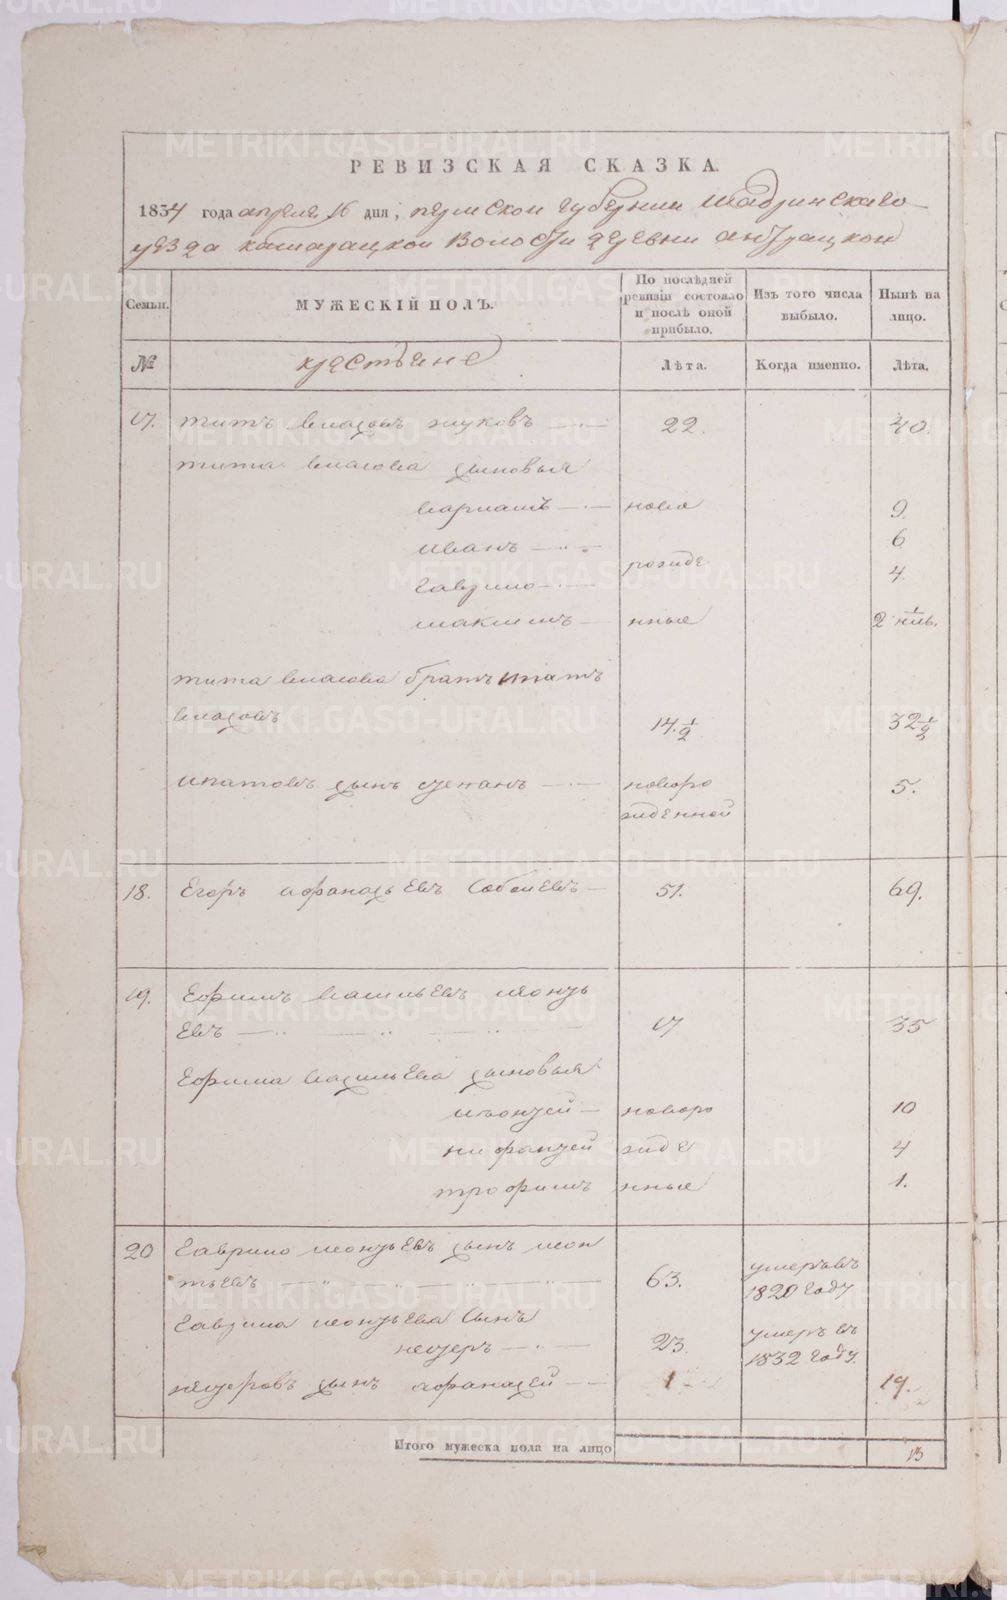 РЕВИЗСКАЯ СКАЗКА.
1834 года апреля 16 дня, пермской губернии Шадринскаго
уезда катарацкой Волости деревни
Семьи. МУЖЕСКІЙ ПОЛЪ. По послѣдней ревизіи состояло и послѣ оной прибыло. Изъ того числа выбыло. Нынѣ на лицо.
№ крестьяне Лѣта. Когда именно. Лѣта.
17. титъ власовъ жуковъ 22. 40.
тита власова сыновья
варлатъ ново 9.
иванъ 6
гаврило рожде 4.
максимъ нные 2 1/2
тита власова братъ ипатъ
власовъ 14. 1/2 32 1/2
ипатовъ сынъ степанъ новоро 5.
жденной
18. Егоръ афанасьевъ 51. 69.
19. Ефимъ васильевъ леонть
евъ 17 35
Ефима васильева сыновья
новоро 10
жде 4
трофимъ нные 1.
20 Гаврило леонтьевъ сынъ леон
тьевъ 63. умеръ въ
1820 году
Гаврила леонтьева Сынъ
петръ 23. умеръ въ
1832 году.
петровъ сынъ афанасей 1 19.
Итого мужеска пола на лицо 13
METRIKI.GASO-URAL.RU